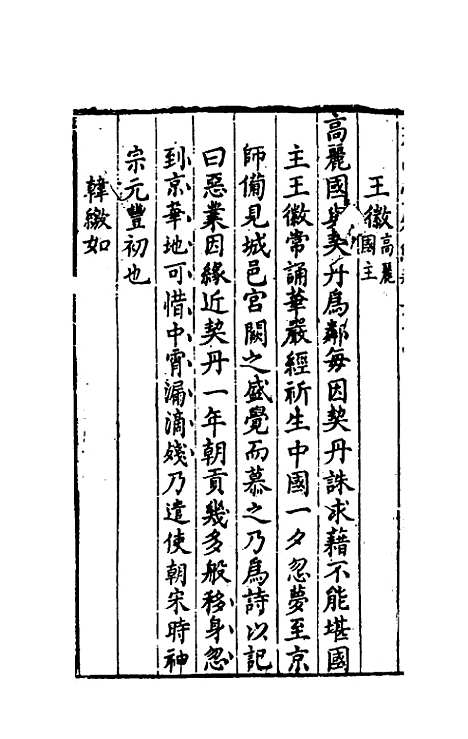 王徽高麗國主
高麗國與契丹爲鄰每因契丹誅求藉不能堪國
主王徽常誦華嚴經祈生中國一夕忽夢至京
師備見城邑宮闕之盛覺而慕之乃爲詩以記
曰惡業因緣近契丹一年朝貢幾多般移身忽
到京華地可惜中宵漏滴殘乃遣使朝宋時神
宗元豐初也
韓繳如